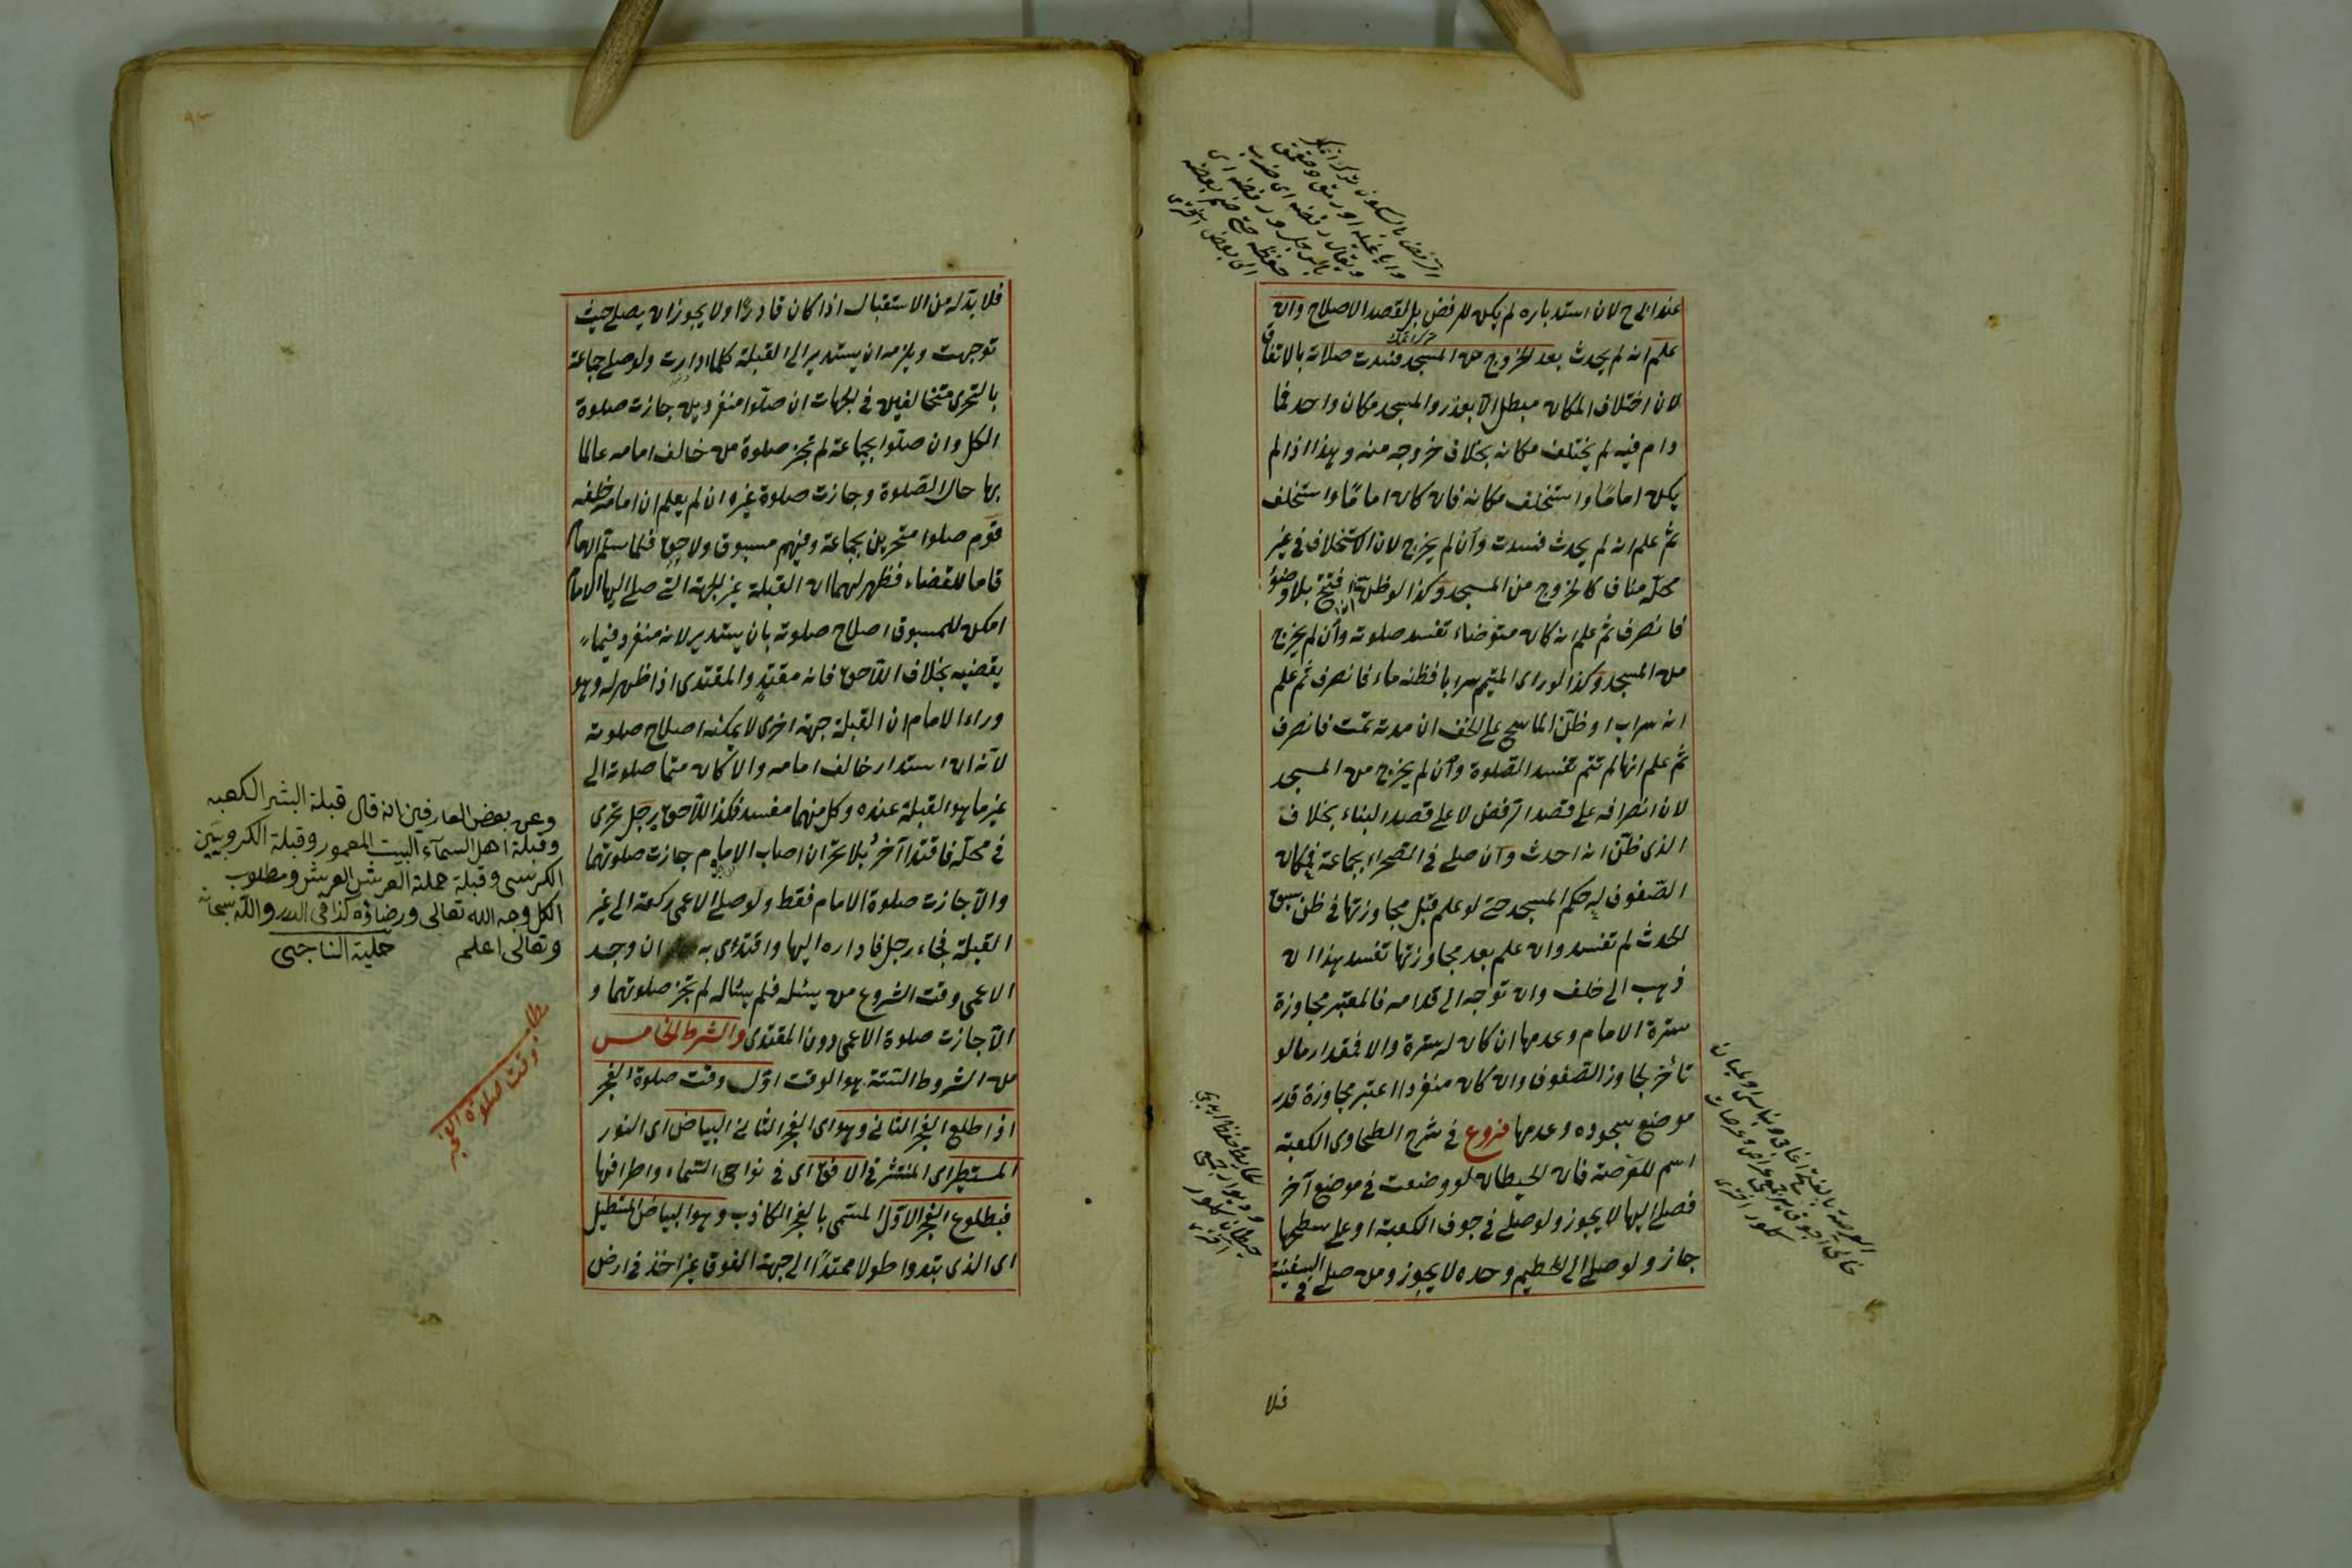 عند ابى ح لان استدباره لم يكن للرفض بل لقصد الاصلاح وان
علم انه لم يحدث بعد الخروج من المسجد فسدت صلاته بالاتفاق
لان اختلاف المكان مبطل الا بعذر والمسجد مكان واحد فما
دام فيه لم يختلف مكانه بخلاف خروجه منه وهذا اذا لم
يكن اماما واستخلف مكانه فان كان اماما واستخلف
ثم علم انه لم يحدث فسدت وان لم يخرج لان الاستخلاف فى غير
محله مناف كالخروج من المسجد وكذا لو ظن انه افتتح بلا وضوء
فانصرف ثم علم انه كان متوضاء تفسد صلوته وان لم يخرج
من المسجد وكذا لو راى المتيمم سرابا فظنه ماء فانصرف ثم علم
انه سراب او ظن الماسح على الخف ان مدته تمت فانصرف
ثم علم انها لم تتم تفسد الصلوة وان لم يخرج من المسجد
لان انصرافه على قصد الرفض لا على قصد البناء بخلاف
الذى ظن انه احدث وان صلى فى الصحراء بجماعة فمكان
الصفوف له حكم المسجد حتى لو علم قبل مجاوزتها فى ظن سبق
الحدث لم تفسد وان علم بعد مجاوزتها تفسد هذا ان
ذهب الى خلف وان توجه الى قدامه فالمعتبر مجاوزة
سترة الامام وعدمها ان كان له سترة والا فمقدار ما لو
تأخر لجاوز الصفوف وان كان منفردا اعتبر مجاوزة قدر
موضع سجوده وعدمها فروع فى شرح الطحاوى الكعبة
اسم للعرصة فان الحيطان لو وضعت فى موضع آخر
فصلى اليها لا يجوز ولو صلى فى جوف الكعبة او على سطحها
جاز ولو صلى الى الحطيم وحده لا يجوز ومن صلى فى السفينة
فلا
فلا بد له من الاستقبال اذا كان قادرا ولا يجوز ان يصلى حيث
توجهت ويلزمه ان يستدير الى القبلة كلما ادارت ولو صلى جماعة
بالتحرى متخالفين فى الجهات ان صلوا منفردين جازت صلوة
الكل وان صلوا بجماعة لم تجز صلوة من خالف امامه عالما
بها حال الصلوة وجازت صلوة غيره ان لم يعلم ان امامه خلفه
قوم صلوا متحرين بجماعة وفيهم مسبوق ولاحق فلما سلم الامام
قاما للقضاء فظهر لهما ان القبلة غير الجهة التى صلى اليها الامام
امكن للمسبوق اصلاح صلوته بان يستدير لانه منفرد فيما
يقضيه بخلاف اللاحق فانه مقتد والمقتدى اذا ظهر له وهو
وراء الامام ان القبلة جهة اخرى لا يمكنه اصلاح صلوته
لانه ان استدار خالف امامه والا كان متما صلوته الى
غير ما هو القبلة عنده وكل منهما مفسد فكذا اللاحق رجل تحرى
فى محله فاقتدا آخر بلا تحر ان اصاب الامام جازت صلوتهما
والا جازت صلوة الامام فقط ولو صلى الاعمى ركعة الى غير
القبلة فجاء رجل فاداره اليها واقتدى به ان وجد
الاعمى وقت الشروع من يسئله فلم يسئاله لم تجز صلوتهما و
الا جازت صلوة الاعمى دون المقتدى والشرط الخامس
من الشروط الستة هو الوقت اول وقت صلوة الفجر
اذا طلع الفجر الثانى وهو اى الفجر الثانى البياض اى النور
المستطير اى المنتشر فى الافق اى فى نواحى السماء واطرافها
فبطلوع الفجر الاول المسمى بالفجر الكاذب وهو البياض المستطيل
اى الذى يبدوا طولا ممتدا الى جهة الفوق غير اخذ فى ارض
وعن بعض العارفين انه قال قبلة البشر الكعبه
وقبلة اهل السمآء البيت المعمور وقبلة الكروبيين
الكرسى وقبلة حملة العرش العرش ومطلوب
الكل وجه الله تعالى ورضاؤه كذا فى الدرر والله سبحانه
وتعالى اعلم حلية الناجى
وقت صلوة الفجر